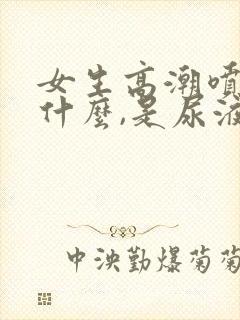 女生高潮噴
什麼,是尿液
中泱勤爆菊菊